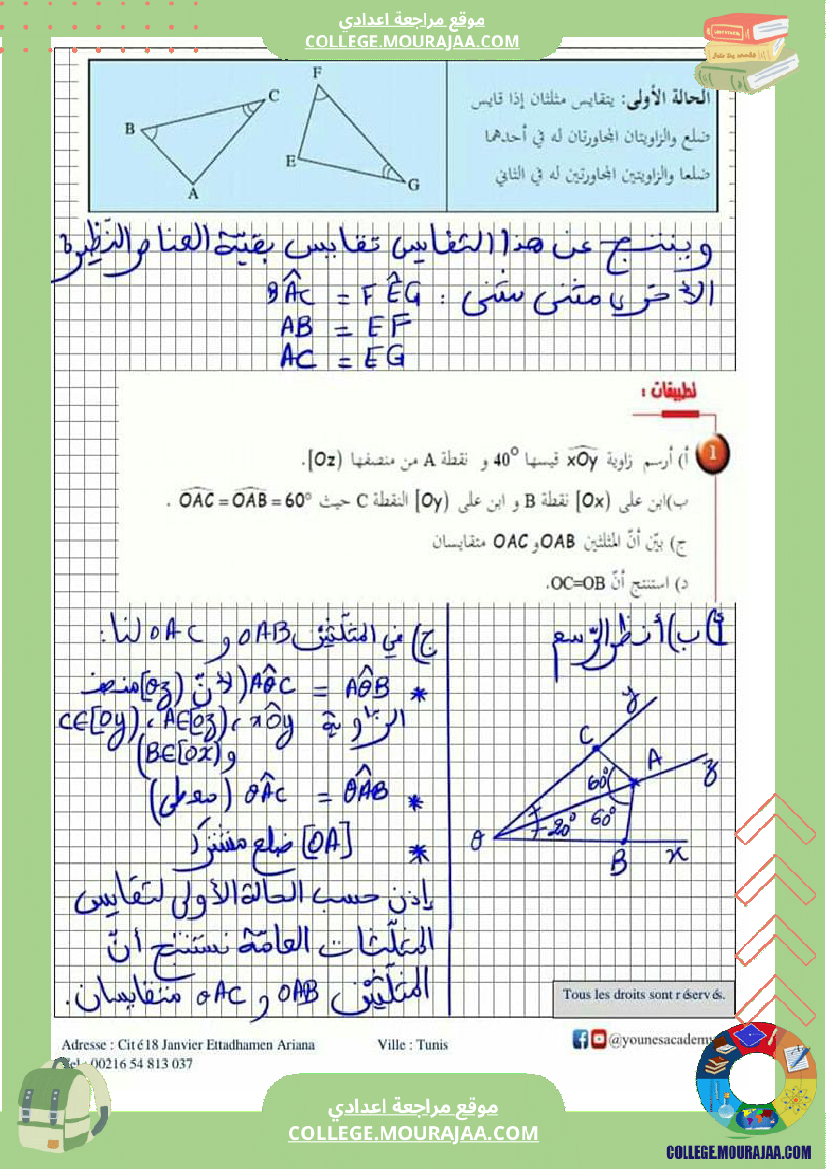 موقع مراجعة اعدادي
COLLEGE.MOURAJAA.COM
الحالة الأولى: يتقايس مثلثان إذا قايس
ضلع والزاويتان المجاورتان له في أحدهما
ضلعا والزاويتين المجاورتين له في الثاني
B C A
F E G
وينتج عن هذا التقايس تقايس بقيّة العناصر النّظيرة
الأخرى مثنى مثنى : BÂC = FÊG
AB = EF
AC = EG
تطبيقات :
1
أ) أرسم زاوية xOy قيسها 40° و نقطة A من منصفها [Oz).
ب)ابن على [Ox) نقطة B و ابن على [Oy) النقطة C حيث OAC = OAB = 60° .
ج) بيّن أنّ المثلثين OAB و OAC متقايسان
د) استنتج أنّ OC=OB.
أ) ب) أنظر الرّسم
y
C
A
z
60°
60°
20°
O
B
x
ج) في المثلّثين OAB و OAC لنا:
* AÔB = AÔC (لأنّ [Oz) منصف
الزّاوية xÔy ، A∈[Oz) ، C∈[Oy)
و B∈[Ox))
* OÂB = OÂC (معطى)
* [OA] ضلع مشترك
إذن حسب الحالة الأولى لتقايس
المثلّثات العامّة نستنتج أنّ
المثلّثين OAB و OAC متقايسان.
Tous les droits sont réservés.
Adresse : Cité 18 Janvier Ettadhamen Ariana Ville : Tunis
@younesacademy
Tel : 00216 54 813 037
موقع مراجعة اعدادي
COLLEGE.MOURAJAA.COM
COLLEGE.MOURAJAA.COM